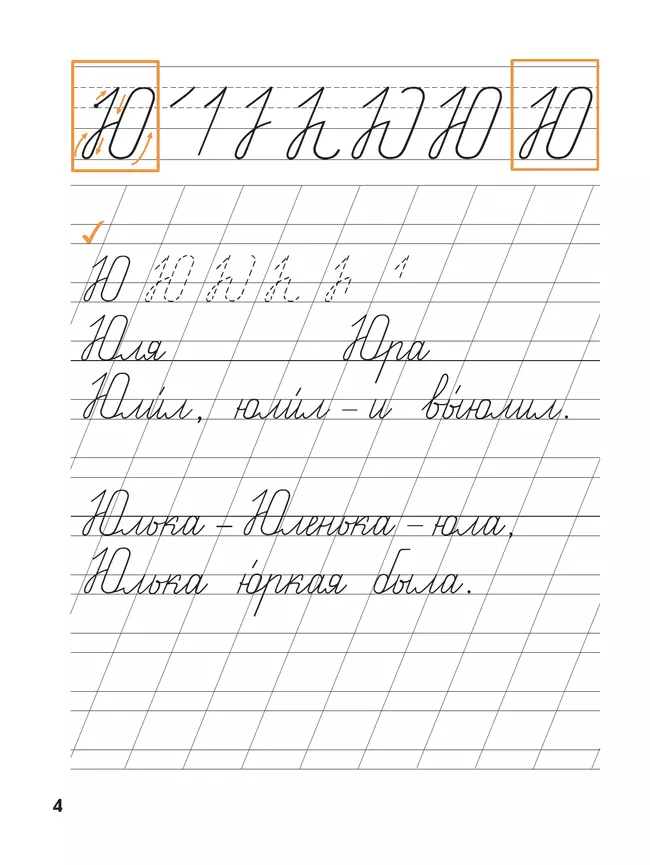 Ю Ю Ю
Ю Ю
Юля Юра
Юли́л, юли́л – и вы́юлил.
Юлька – Юленька – юла,
Юлька ю́ркая была.
4